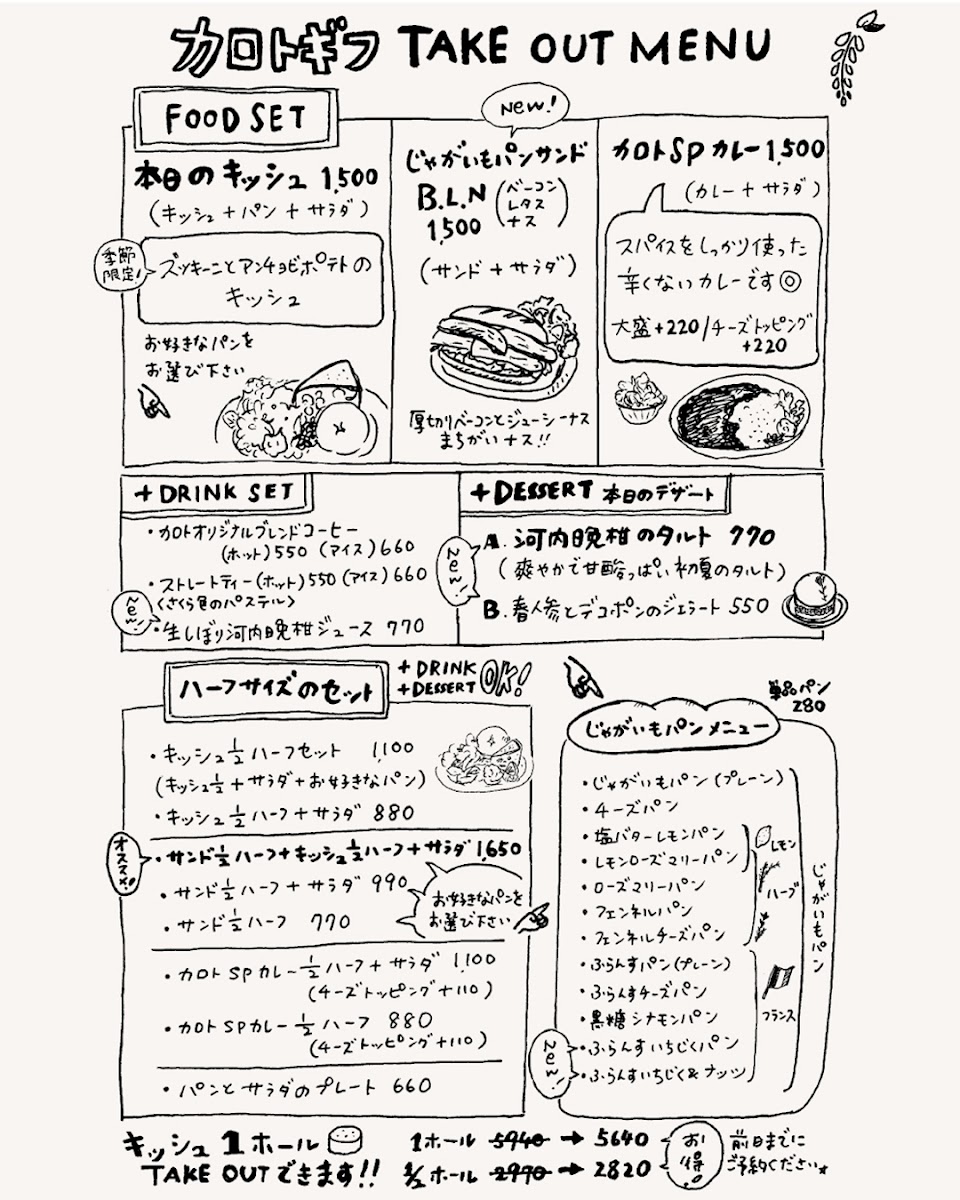 カロトギフ TAKE OUT MENU
FOOD SET
本日のキッシュ 1,500
(キッシュ+パン+サラダ)
季節
限定!
ズッキーニとアンチョビポテトの
キッシュ
お好きなパンを
お選び下さい
New!
じゃがいもパンサンド
B.L.N (ベーコン
レタス
ナス)
1,500
(サンド+サラダ)
厚切りベーコンとジューシーナス
まちがいナス!!
カロトSPカレー 1,500
(カレー+サラダ)
スパイスをしっかり使った
辛くないカレーです◎
大盛+220/チーズトッピング
+220
+DRINK SET
・カロトオリジナルブレンドコーヒー
(ホット)550 (アイス)660
・ストレートティー(ホット)550(アイス)660
〈さくら色のパステル〉
New!
・生しぼり河内晩柑ジュース 770
+DESSERT 本日のデザート
New!
A. 河内晩柑のタルト 770
(爽やかで甘酸っぱい初夏のタルト)
B. 春人参とデコポンのジェラート 550
ハーフサイズのセット
+DRINK
+DESSERT OK!
・キッシュ½ハーフセット 1,100
(キッシュ½+サラダ+お好きなパン)
・キッシュ½ハーフ+サラダ 880
オススメ!
・サンド½ハーフ+キッシュ½ハーフ+サラダ 1,650
・サンド½ハーフ+サラダ 990
・サンド½ハーフ 770
お好きなパンを
お選び下さい
・カロトSPカレー½ハーフ+サラダ 1,100
(チーズトッピング+110)
・カロトSPカレー½ハーフ 880
(チーズトッピング+110)
・パンとサラダのプレート 660
単品パン
280
じゃがいもパンメニュー
・じゃがいもパン(プレーン)
・チーズパン
・塩バターレモンパン
・レモンローズマリーパン
・ローズマリーパン
・フェンネルパン
・フェンネルチーズパン
・ふらんすパン(プレーン)
・ふらんすチーズパン
・黒糖シナモンパン
・ふらんすいちじくパン
・ふらんすいちじく&ナッツ
New!
レモン
ハーブ
フランス
じゃがいもパン
キッシュ1ホール
TAKE OUTできます!!
1ホール 5940 → 5640
½ホール 2970 → 2820
お
得!
前日までに
ご予約ください☆